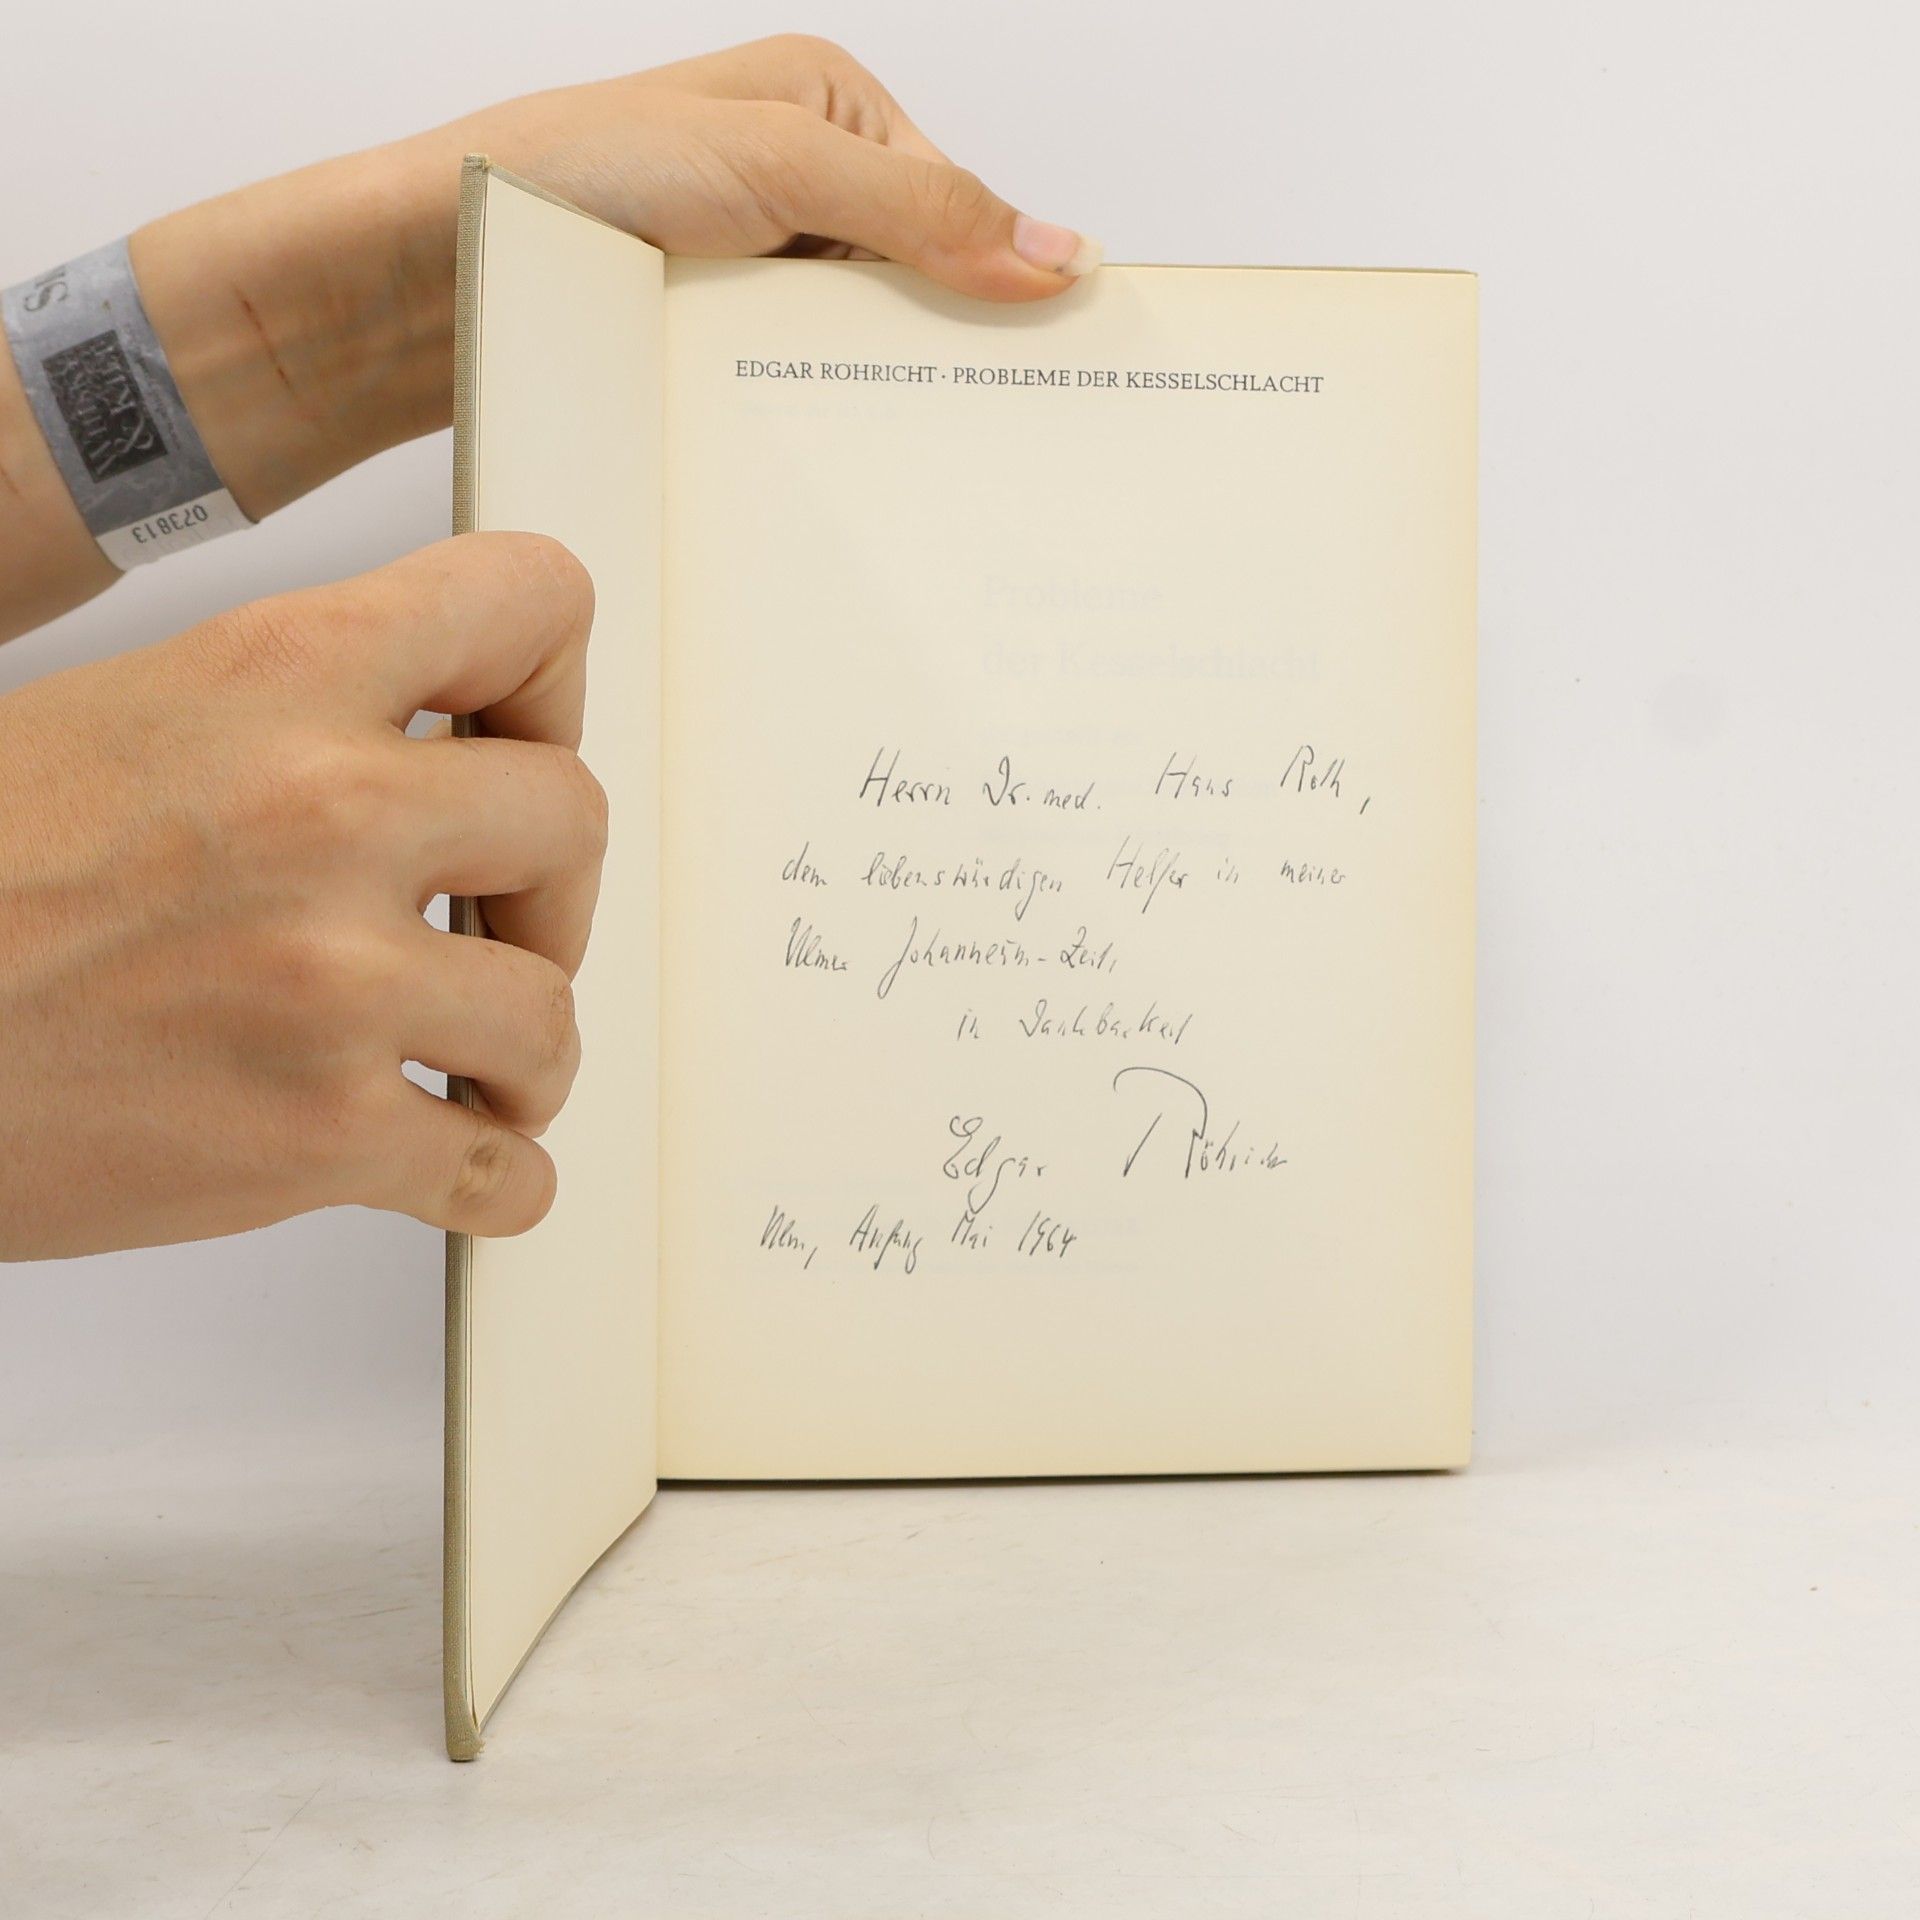 EDGAR RÖHRICHT · PROBLEME DER KESSELSCHLACHT
Probleme
der Kesselschlacht
Herrn Dr. med. Hans Roth,
dem liebenswürdigen Helfer in meiner
Ulmer Johanneum-Zeit,
in Dankbarkeit
Edgar Röhricht
Ulm, Anfang Mai 1964
073813